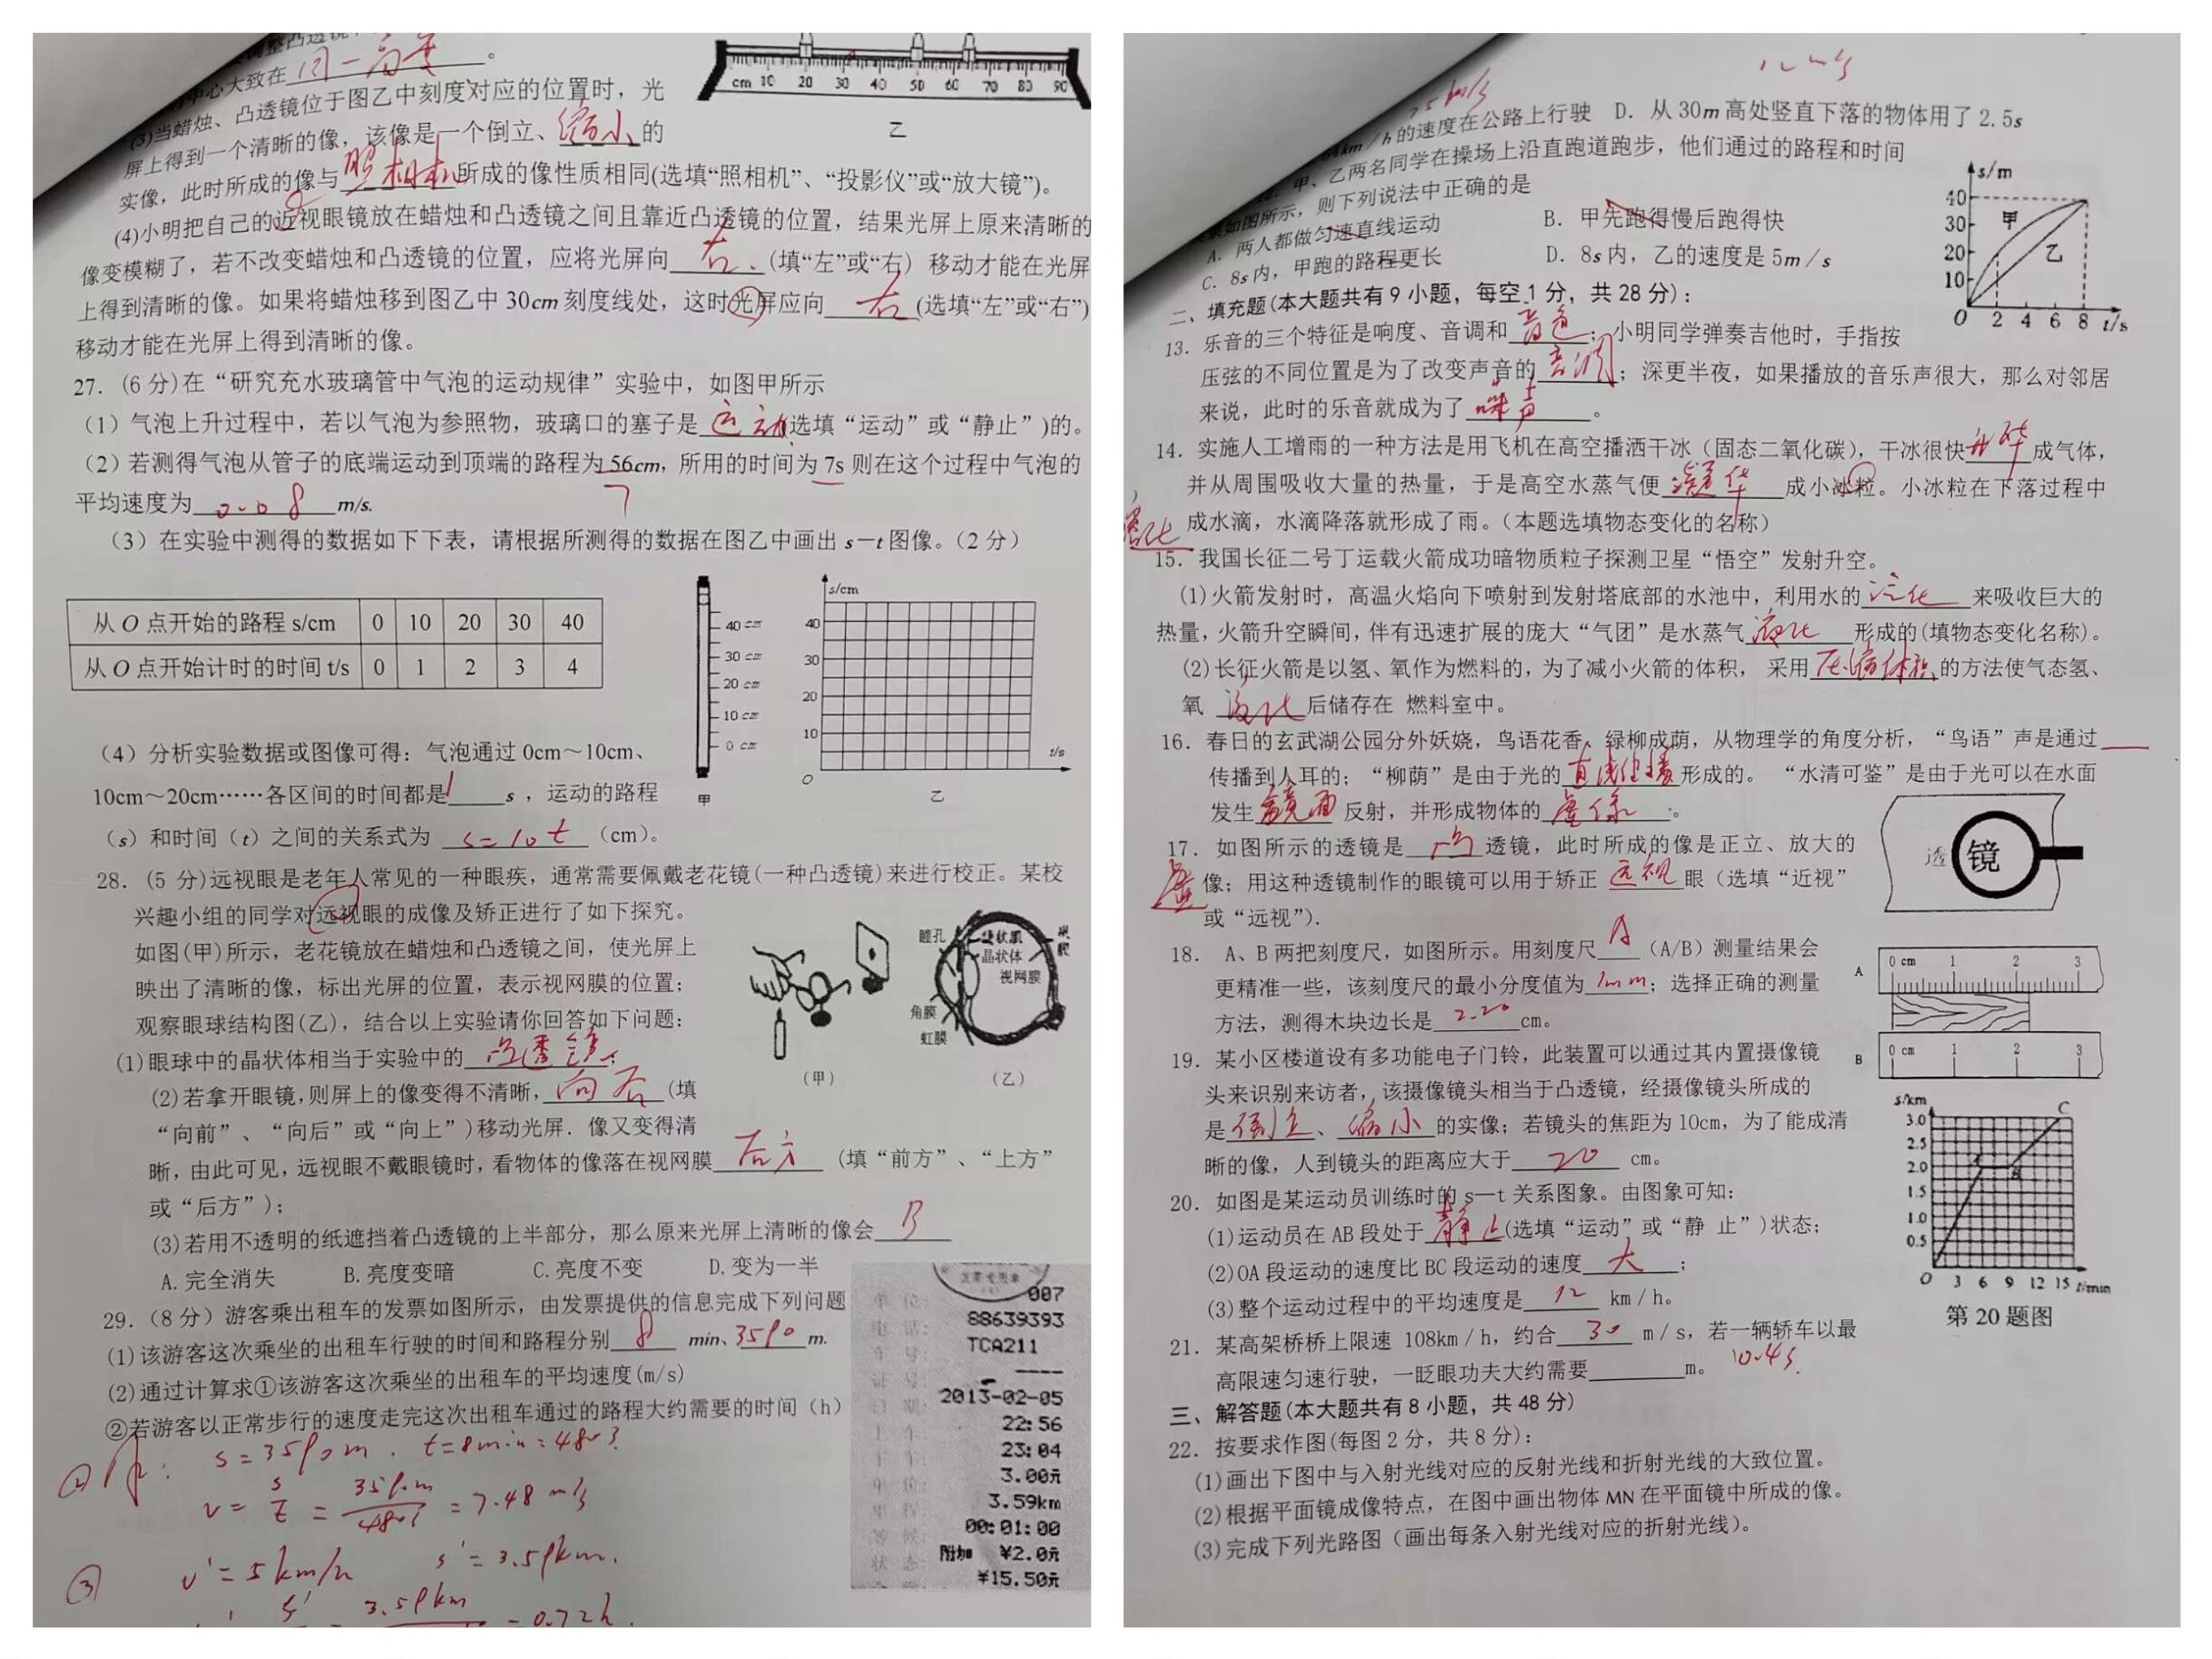 中心大致在同一高度。
(3)当蜡烛、凸透镜位于图乙中刻度对应的位置时，光
屏上得到一个清晰的像，该像是一个倒立、缩小的
实像，此时所成的像与照相机所成的像性质相同(选填“照相机”、“投影仪”或“放大镜”)。
(4)小明把自己的近视眼镜放在蜡烛和凸透镜之间且靠近凸透镜的位置，结果光屏上原来清晰的
像变模糊了，若不改变蜡烛和凸透镜的位置，应将光屏向右(填“左”或“右）移动才能在光屏
上得到清晰的像。如果将蜡烛移到图乙中30cm刻度线处，这时光屏应向右(选填“左”或“右”)
移动才能在光屏上得到清晰的像。
cm 10 20 30 40 50 60 70 80 90
乙
27. (6分)在“研究充水玻璃管中气泡的运动规律”实验中，如图甲所示
（1）气泡上升过程中，若以气泡为参照物，玻璃口的塞子是运动选填“运动”或“静止”)的。
（2）若测得气泡从管子的底端运动到顶端的路程为56cm，所用的时间为7s则在这个过程中气泡的
平均速度为0.08m/s.
7
（3）在实验中测得的数据如下下表，请根据所测得的数据在图乙中画出s—t图像。（2分）
从O点开始的路程s/cm 0 10 20 30 40
从O点开始计时的时间t/s 0 1 2 3 4
40cm
30cm
20cm
10cm
0cm
甲
s/cm
40
30
20
10
O
t/s
乙
（4）分析实验数据或图像可得：气泡通过0cm～10cm、
10cm～20cm……各区间的时间都是1s，运动的路程
（s）和时间（t）之间的关系式为s=10t（cm）。
28. (5分)远视眼是老年人常见的一种眼疾，通常需要佩戴老花镜(一种凸透镜)来进行校正。某校
兴趣小组的同学对远视眼的成像及矫正进行了如下探究。
如图(甲)所示，老花镜放在蜡烛和凸透镜之间，使光屏上
映出了清晰的像，标出光屏的位置，表示视网膜的位置；
观察眼球结构图(乙)，结合以上实验请你回答如下问题：
瞳孔
晶状体
视网膜
角膜
虹膜
（甲）
（乙）
(1)眼球中的晶状体相当于实验中的凸透镜
(2)若拿开眼镜,则屏上的像变得不清晰，向后(填
“向前”、“向后”或“向上”)移动光屏．像又变得清
晰，由此可见，远视眼不戴眼镜时，看物体的像落在视网膜后方（填“前方”、“上方”
或“后方”)；
(3)若用不透明的纸遮挡着凸透镜的上半部分，那么原来光屏上清晰的像会B
A.完全消失 B.亮度变暗 C.亮度不变 D.变为一半
29. （8分）游客乘出租车的发票如图所示，由发票提供的信息完成下列问题
(1)该游客这次乘坐的出租车行驶的时间和路程分别8 min、3590m.
(2)通过计算求①该游客这次乘坐的出租车的平均速度(m/s)
②若游客以正常步行的速度走完这次出租车通过的路程大约需要的时间（h）
s=3590m. t=8min=480s
v=s/t=3590m/480s=7.48m/s
v'=5km/h s'=3.59km.
s' 3.59km =0.72h.
007
88639393
TCA211
----
2013-02-05
22:56
23:04
3.00元
3.59km
00:01:00
附加 ¥2.0元
¥15.50元
12m/s
km/h的速度在公路上行驶 D. 从30m高处竖直下落的物体用了2.5s
甲、乙两名同学在操场上沿直跑道跑步，他们通过的路程和时间
如图所示，则下列说法中正确的是
A. 两人都做匀速直线运动 B. 甲先跑得慢后跑得快
C. 8s内，甲跑的路程更长 D. 8s内，乙的速度是5m/s
s/m
40
30
20
10
O 2 4 6 8 t/s
甲
乙
二、填充题(本大题共有9小题，每空1分，共28分)：
13. 乐音的三个特征是响度、音调和音色；小明同学弹奏吉他时，手指按
压弦的不同位置是为了改变声音的音调；深更半夜，如果播放的音乐声很大，那么对邻居
来说，此时的乐音就成为了噪声。
14. 实施人工增雨的一种方法是用飞机在高空播洒干冰（固态二氧化碳），干冰很快升华成气体，
并从周围吸收大量的热量，于是高空水蒸气便凝华成小冰粒。小冰粒在下落过程中
成水滴，水滴降落就形成了雨。（本题选填物态变化的名称）
15. 我国长征二号丁运载火箭成功暗物质粒子探测卫星“悟空”发射升空。
(1)火箭发射时，高温火焰向下喷射到发射塔底部的水池中，利用水的汽化来吸收巨大的
热量，火箭升空瞬间，伴有迅速扩展的庞大“气团”是水蒸气液化形成的(填物态变化名称)。
(2)长征火箭是以氢、氧作为燃料的，为了减小火箭的体积， 采用压缩体积的方法使气态氢、
氧 液化后储存在 燃料室中。
16. 春日的玄武湖公园分外妖娆，鸟语花香，绿柳成荫，从物理学的角度分析，“鸟语”声是通过
传播到人耳的；“柳荫”是由于光的直线传播形成的。 “水清可鉴”是由于光可以在水面
发生镜面反射，并形成物体的虚像。
17. 如图所示的透镜是凸透镜，此时所成的像是正立、放大的
虚像；用这种透镜制作的眼镜可以用于矫正远视眼（选填“近视”
或“远视”）.
透 镜
18. A、B两把刻度尺，如图所示。用刻度尺A（A/B）测量结果会
更精准一些，该刻度尺的最小分度值为1mm；选择正确的测量
方法，测得木块边长是2.20cm。
A 0 cm 1 2 3
B 0 cm 1 2 3
19. 某小区楼道设有多功能电子门铃，此装置可以通过其内置摄像镜
头来识别来访者，该摄像镜头相当于凸透镜，经摄像镜头所成的
是倒立、缩小的实像；若镜头的焦距为10cm，为了能成清
晰的像，人到镜头的距离应大于20 cm。
20. 如图是某运动员训练时的s—t关系图象。由图象可知：
(1)运动员在AB段处于静止(选填“运动”或“静 止”)状态；
(2)OA段运动的速度比BC段运动的速度大；
(3)整个运动过程中的平均速度是12 km/h。
s/km
3.0
2.5
2.0
1.5
1.0
0.5
O 3 6 9 12 15 t/min
C
第20题图
21. 某高架桥桥上限速 108km/h，约合30 m/s，若一辆轿车以最
高限速匀速行驶，一眨眼功夫大约需要m。 0.4s.
三、解答题(本大题共有8小题，共48分)
22. 按要求作图(每图2分，共8分)：
(1)画出下图中与入射光线对应的反射光线和折射光线的大致位置。
(2)根据平面镜成像特点，在图中画出物体MN在平面镜中所成的像。
(3)完成下列光路图（画出每条入射光线对应的折射光线）。